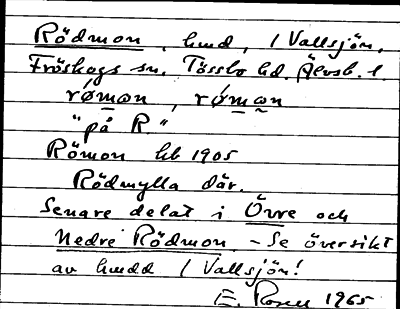 Rödmon, hmd, i Vallsjön,
Fröskogs sn. Tössbo hd. Älvsb. l.
rǿmon, rǿmon
"på R"
Römon hb 1905
Rödmylla där.
Senare delat i Övre och
Nedre Rödmon. - Se översikt
av hmdd i Vallsjön!
E. Rosell 1965